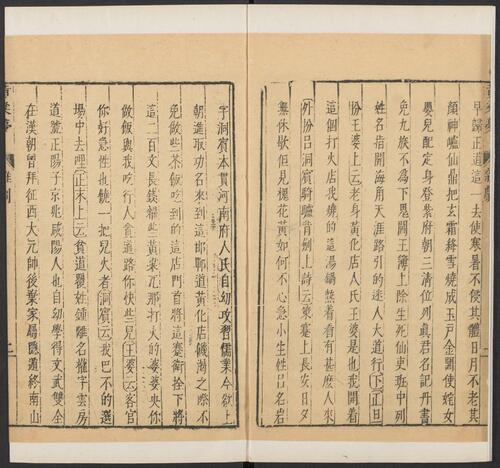 早歸正道這一去使寒暑不侵其體日月不老其
顏神爐仙鼎把玄霜絳雪燒成玉戶金關使姹女
嬰兒配定身登紫府朝三清位列真君名記丹書
免九族不爲下鬼閻王簿上除生死仙吏班中列
姓名指開海角天涯路引的迷人大道行下正旦
扮王婆上云老身黃化店人氏王婆是也我開着
這個打火店我燒的這湯鍋熱着看有甚麽人來
外扮吕洞賓騎驢背劍上詩云策蹇上長安日夕
無休歇但見槐花黃如何不心急小生姓吕名岩
字洞賓本貫河南府人氏自幼攻習儒業今欲上
朝進取功名來到這邯鄲道黃化店饑渴之際不
免做些茶飯吃到的這店門首將這蹇衛拴下將
這二百文長錢糴些黃粱兀那打火的婆婆央你
做飯與我吃行人貪道路你快些兒王婆云客官
你好急性也饒一把兒火者洞賓云我巴不的選
場中去哩正末上云貧道覆姓鍾離名權字雲房
道號正陽子京兆咸陽人也自幼學得文武雙全
在漢朝曾拜征西大元帥後棄家屬隱遁終南山
二